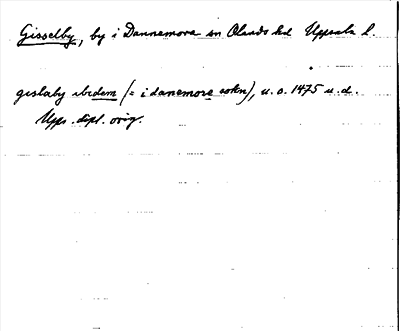 Gisselby, by i Dannemora sn Olands hd Uppsala l.
gislaby ibidem (= i danemore sokn), u. o. 1475 u. d.
Upps. dipl. orig.